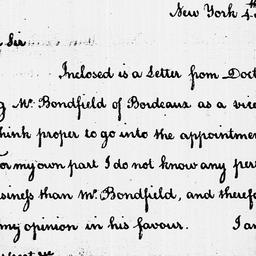 New York 4th
Sir
Inclosed is a Letter from Doct
Mr. Bondfield of Bordeaux as a vice
think proper to go into the appointmen
for my own part I do not know any per
siness than Mr. Bondfield, and therefo
my opinion in his favour. I am